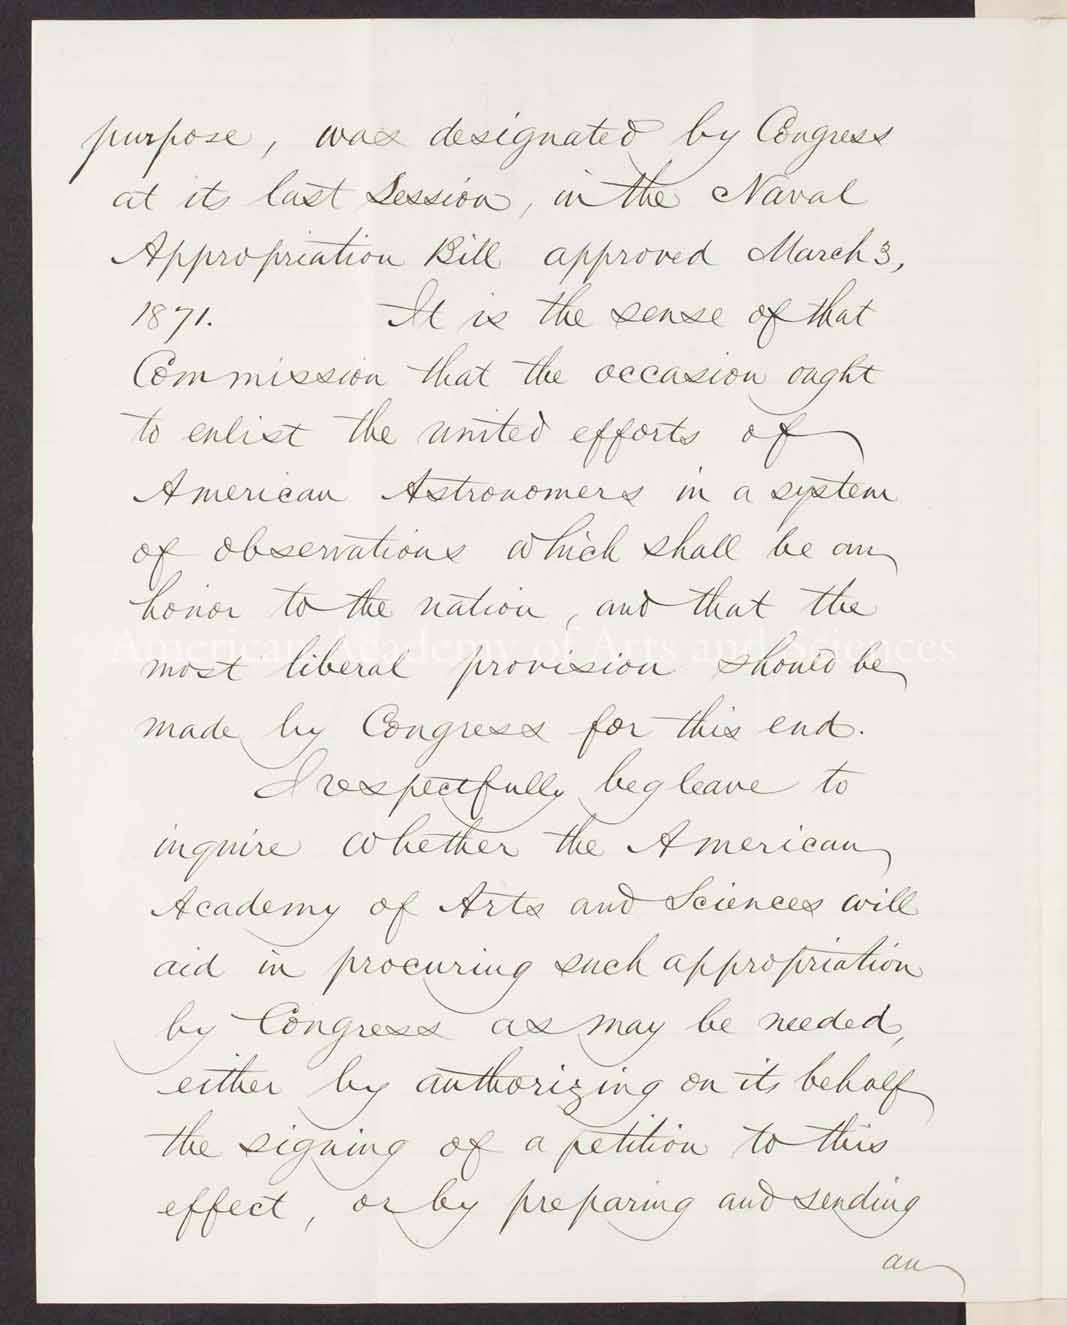 purpose, was designated by Congress
at its last Session, in the Naval
Appropriation Bill approved March 3,
1871. It is the sense of that
Commission that the occasion ought
to enlist the united efforts of
American Astronomers in a system
of observations which shall be an
honor to the nation, and that the
American Academy of Arts and Sciences
most liberal provision should be
made by Congress for this end.
I respectfully beg leave to
inquire whether the American
Academy of Arts and Sciences will
aid in procuring such appropriation
by Congress as may be needed,
either by authorizing on its behalf
the signing of a petition to this
effect, or by preparing and sending
an